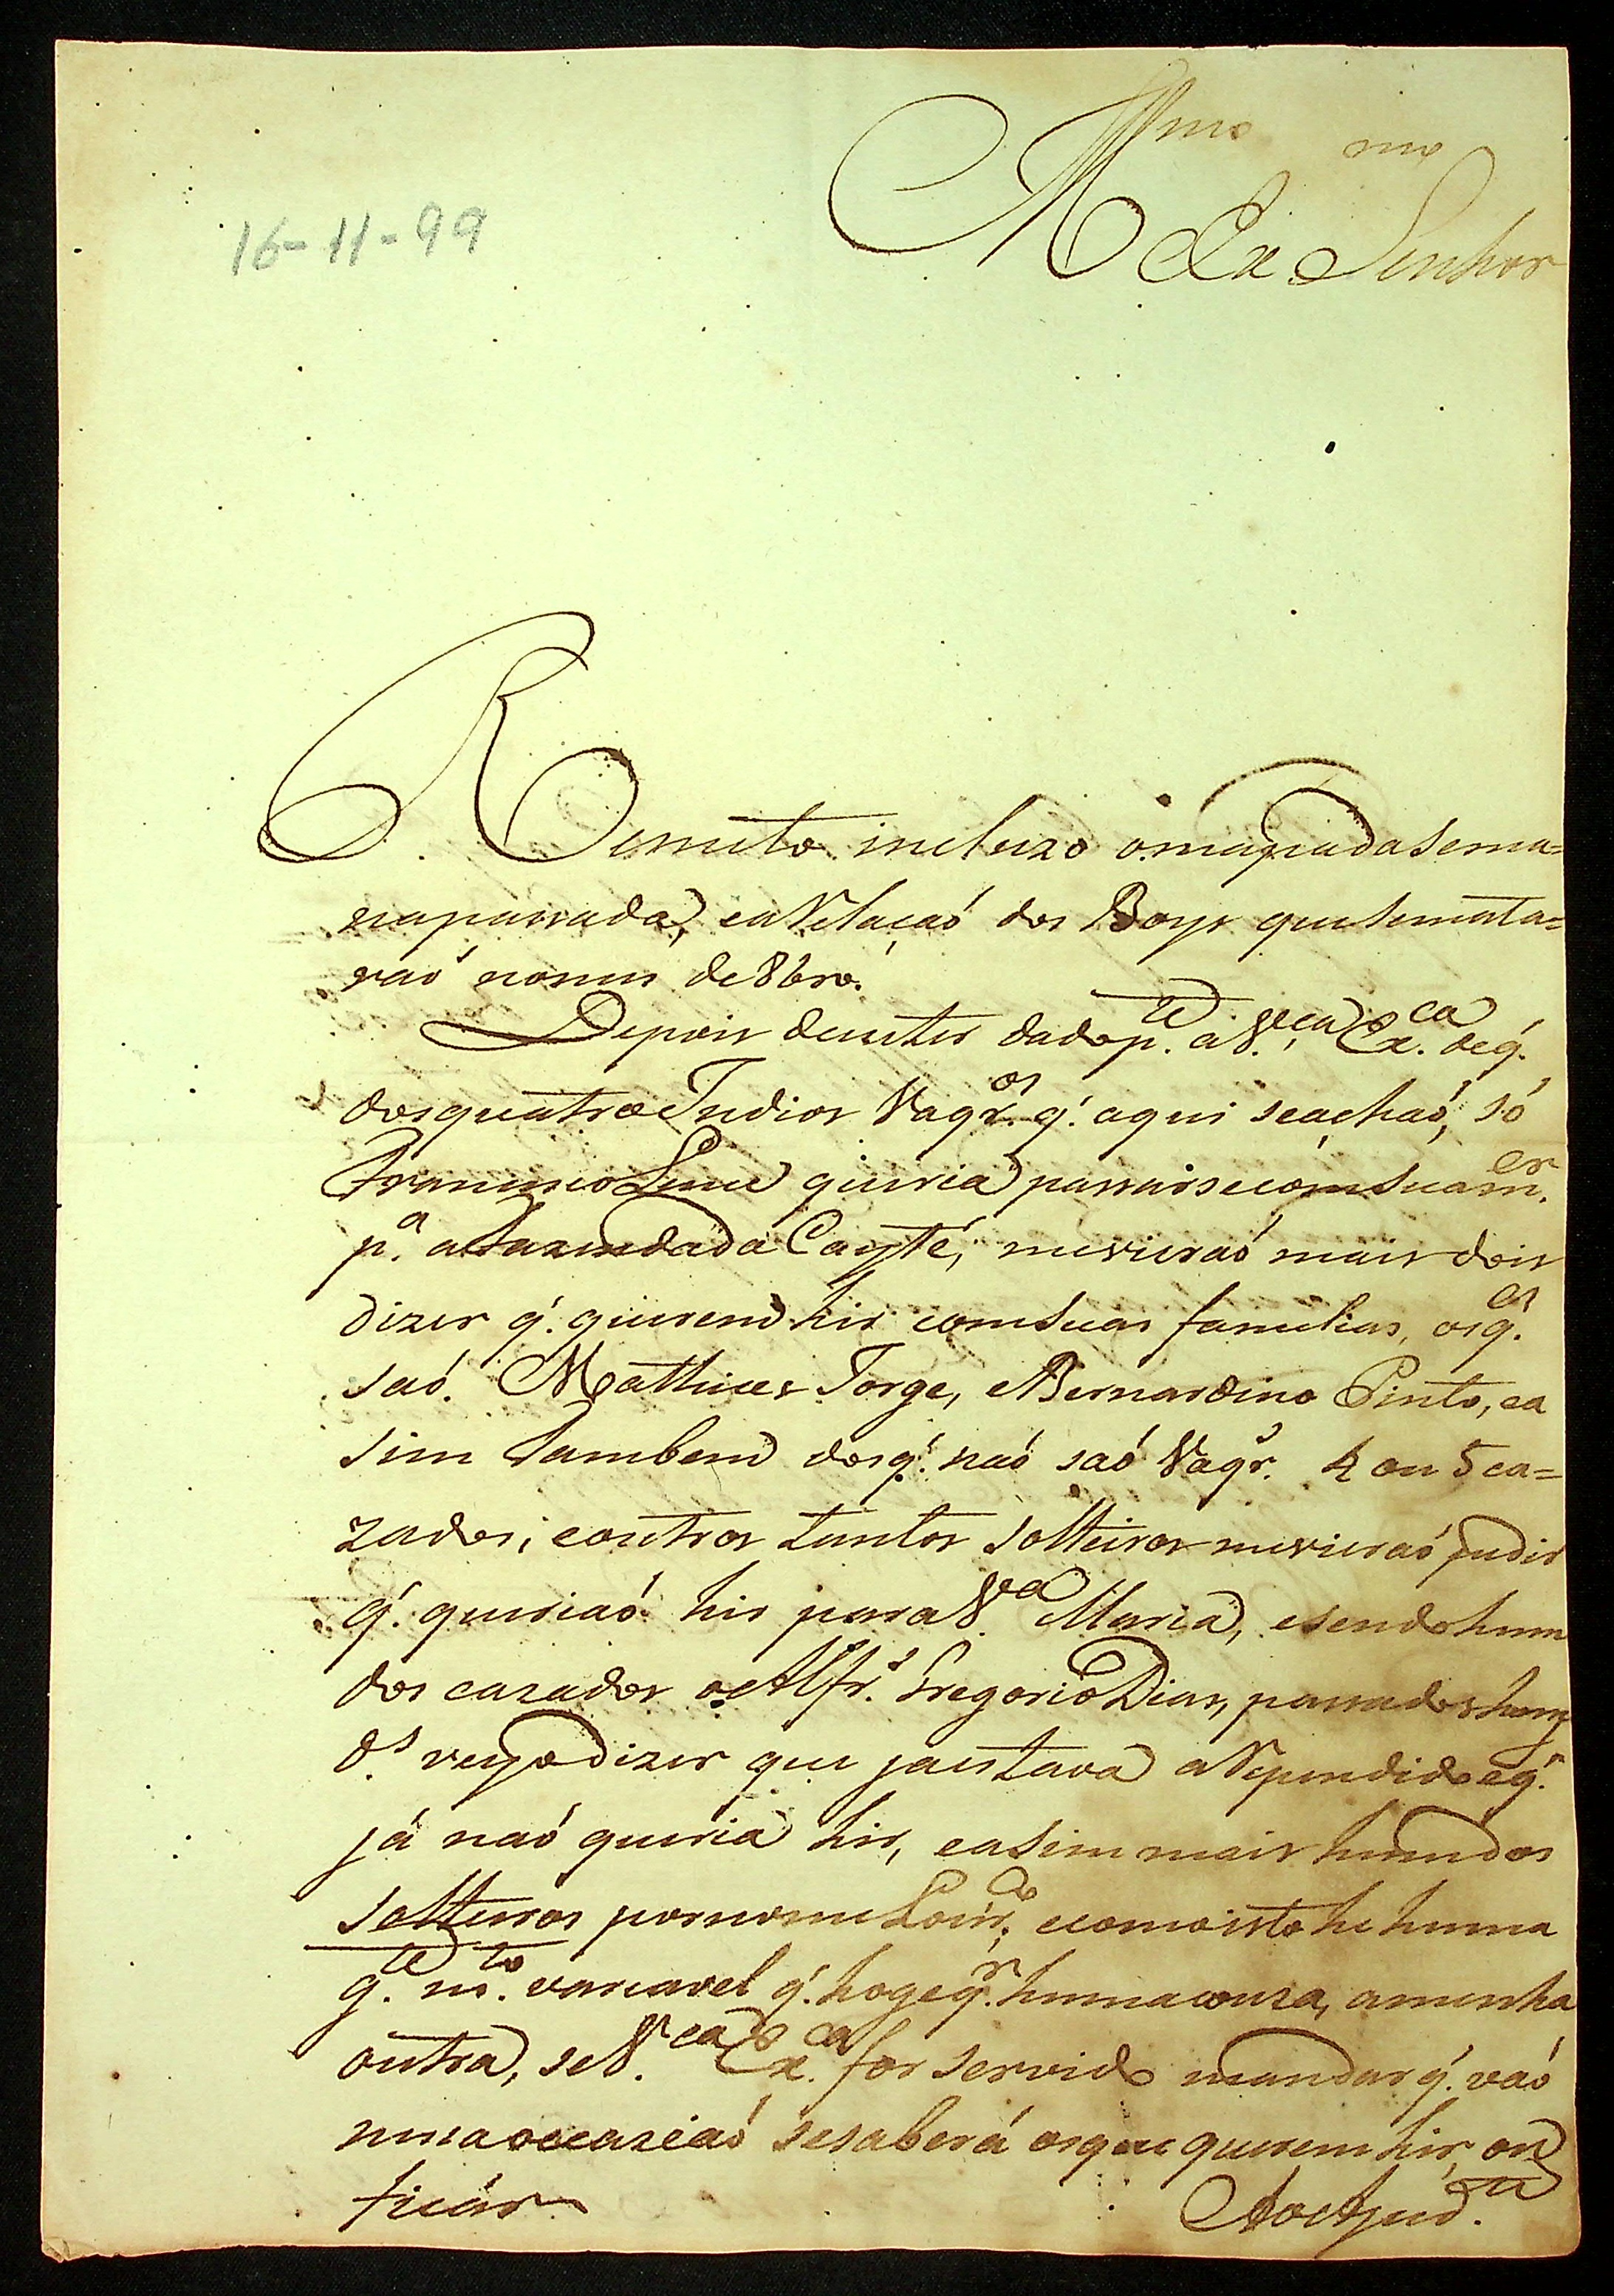 Illmo e Exmo Senhor
16-11-99
Remeto incluzo o mapa da sema=
na passada, e a Relaçaõ dos Boys que se mata=
raõ no mes de 8bro.
Depois de ter dado p.te a V.ca Ex.ca de q.
dos quatro Indios Vaqr.os q. aqui se achaõ, só
Francisco Leme queria passarse com sua m.er
p.a a Fazenda da Cayté, me vieraõ mais dois
dizer q. querem hir com suas familias, os q.es
saõ. Matheus Jorge, e Bernardino Pinto, e a
sim tambem dos q. naõ saõ Vaqr.s 4 ou 5 ca=
zados, e outros tantos solteiros me vieraõ pedir
q. queriaõ hir para V.a Maria, e sendo hum
dos cazados o Alfr.s Gregorio Dias, passados huns
d.s veyo dizer que ja estava aRependido e q.
já naõ queria hir, e asim mais hum dos
solteiros por nome Lour.ço, e como isto he huma
g.te m.to variavel q. hoge q.r huma couza, amenha
outra, se V.ca Ex.ca for servido mandar q. vaõ
nesa occaziaõ se saberá os que querem hir, ou
ficár
Ao Ajud.te